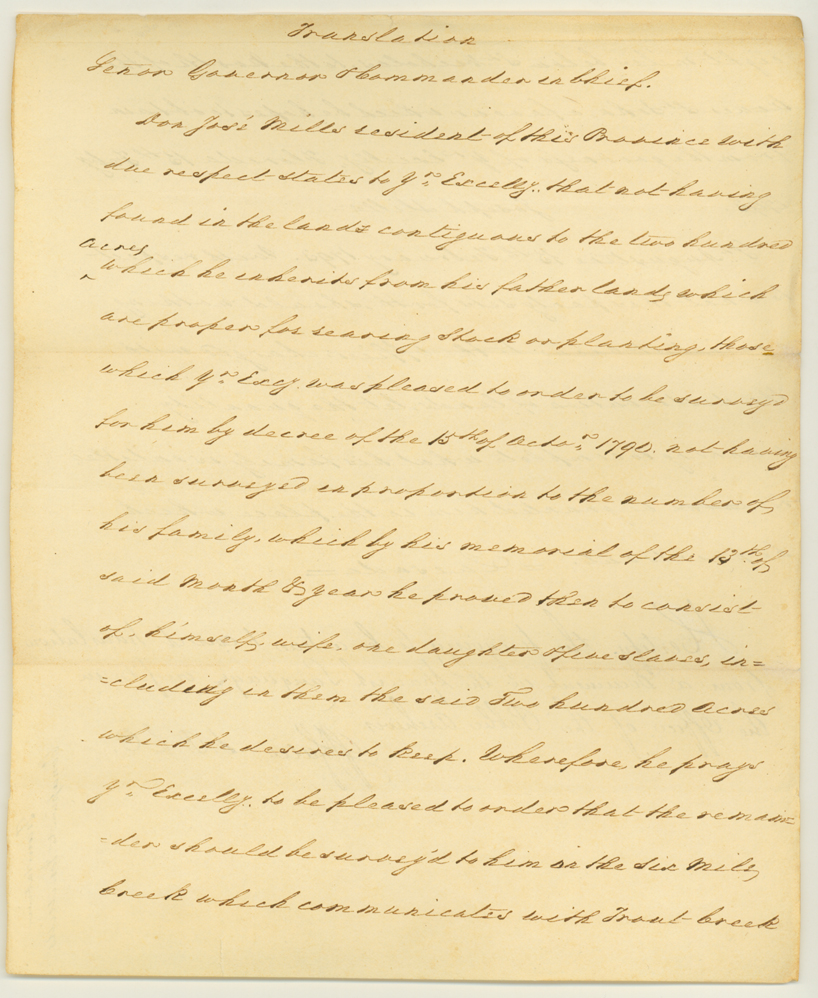 Translation
Señor Governor & Commander in Chief.
Don José Mills resident of this Province with
due respect states to Yr. Excelly. that not having
found in the lands contiguous to the two hundred
acres
^ which he inherits from his father lands which
are proper for rearing Stock or planting, those
which Yr. Excy. was pleased to order to be survey'd
for him by decree of the 15th of Octor. 1790. not having
been surveyed in proportion to the number of
his family, which by his memorial of the 13th. of
said Month & year he proved then to consist
of, himself, wife, one daughter & five slaves, in=
=cluding in them the said Two hundred Acres
which he desires to keep. Wherefore, he prays
Yr. Excelly. to be pleased to order that the remain=
=der should be survey'd to him in the Six Mile
Creek which communicates with Trout Creek